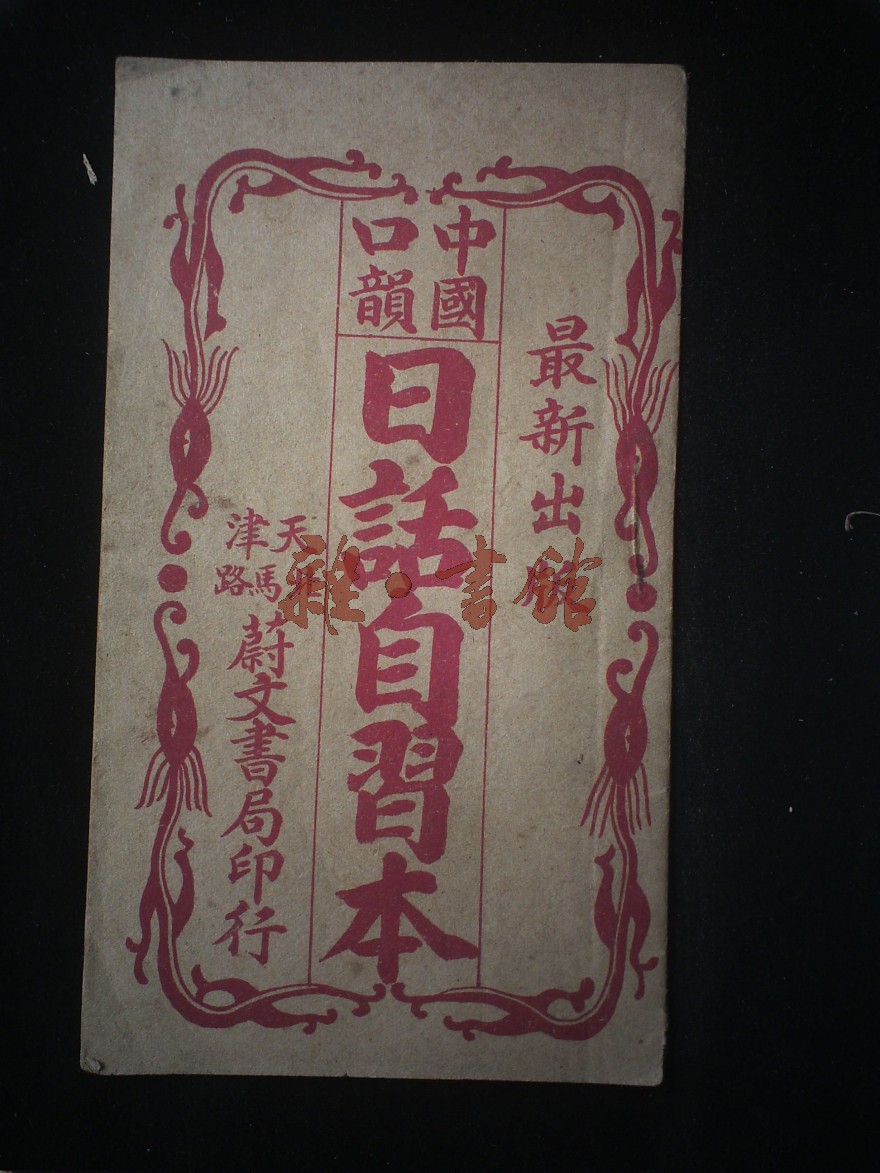 最新出
中國
口韻
日話自習本
天津
馬路
蔚文書局印行
雅·書館